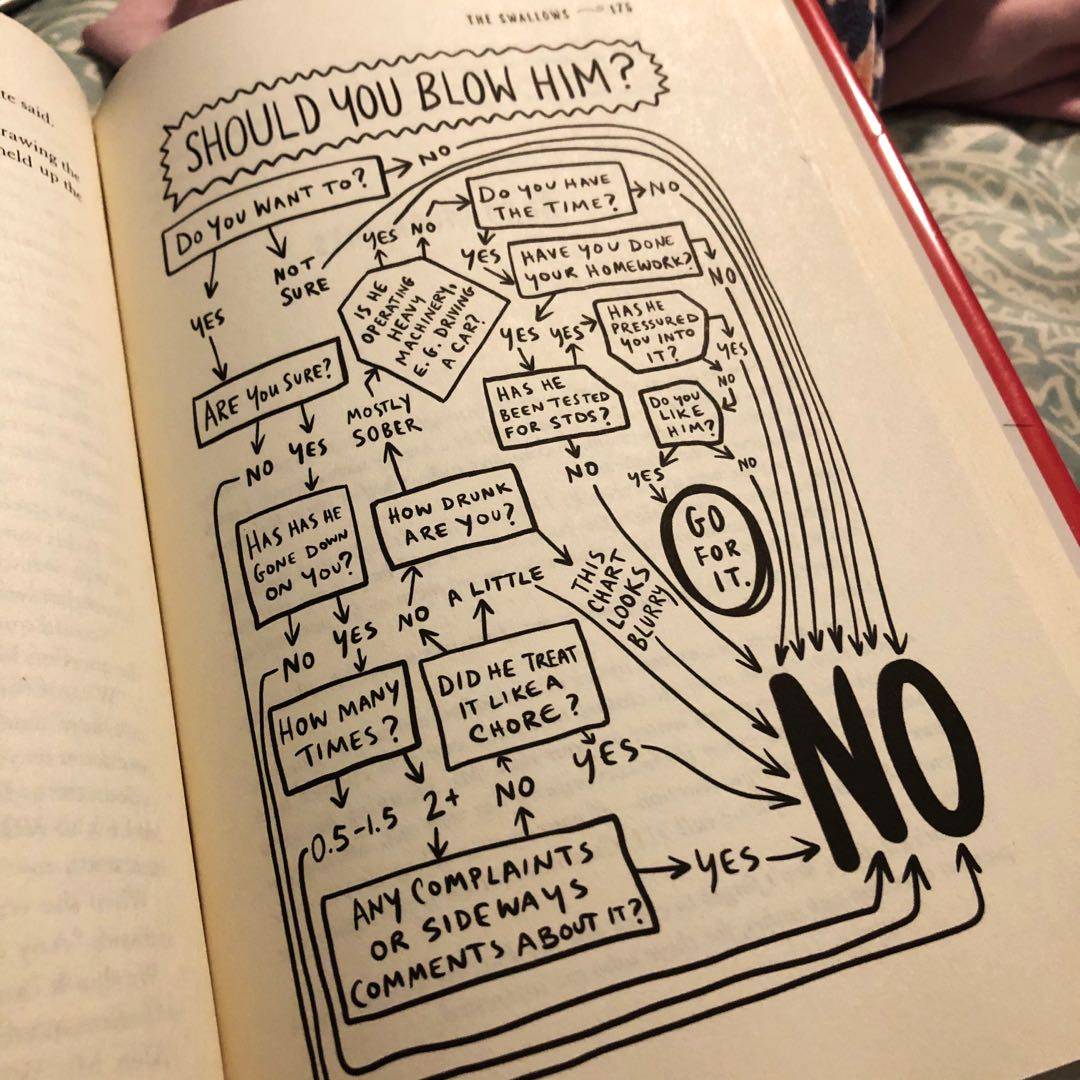 THE SWALLOWS 175
te said.
rawing the
held up the
SHOULD YOU BLOW HIM?
DO YOU WANT TO?
NO
NOT
SURE
YES
ARE YOU SURE?
NO YES
HAS HAS HE
GONE DOWN
ON YOU?
NO YES
HOW MANY
TIMES?
0.5-1.5 2+
ANY COMPLAINTS
OR SIDEWAYS
COMMENTS ABOUT IT?
YES
NO
DID HE TREAT
IT LIKE A
CHORE?
YES
NO
A LITTLE
HOW DRUNK
ARE YOU?
THIS
CHART
LOOKS
BLURRY
MOSTLY
SOBER
IS HE
OPERATING
HEAVY
MACHINERY,
E.G. DRIVING
A CAR?
YES NO
DO YOU HAVE
THE TIME?
NO
YES
HAVE YOU DONE
YOUR HOMEWORK?
NO
YES
HAS HE
BEEN TESTED
FOR STDS?
NO
YES
HAS HE
PRESSURED
YOU INTO
IT?
YES
NO
DO YOU
LIKE
HIM?
NO
YES
GO
FOR
IT.
NO